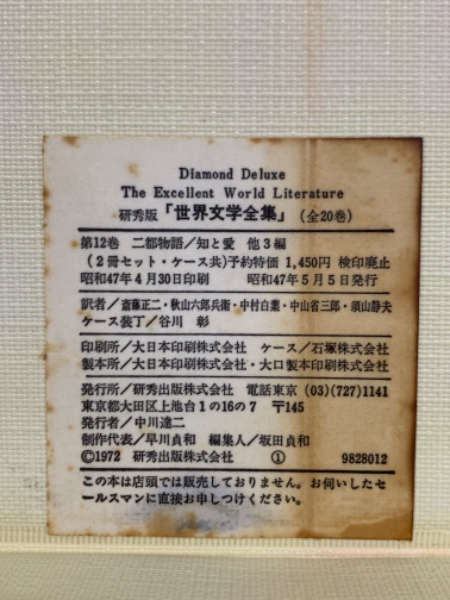 Diamond Deluxe
The Excellent World Literature
研秀版「世界文学全集」(全20巻)
第12巻 二都物語/知と愛 他3編
(2冊セット・ケース共)予約特価 1,450円 検印廃止
昭和47年4月30日印刷 昭和47年5月5日発行
訳者/斎藤正二・秋山六郎兵衛・中村白葉・中山省三郎・須山静夫
ケース装丁/谷川 彰
印刷所/大日本印刷株式会社 ケース/石塚株式会社
製本所/大日本印刷株式会社・大口製本印刷株式会社
発行所/研秀出版株式会社 電話東京 (03)(727)1141
東京都大田区上池台1の16の7 〒145
発行者/中川達二
制作代表/早川貞和 編集人/坂田貞和
©1972 研秀出版株式会社 ① 9828012
この本は店頭では販売しておりません。お伺いしたセ
ールスマンに直接お申しつけください。